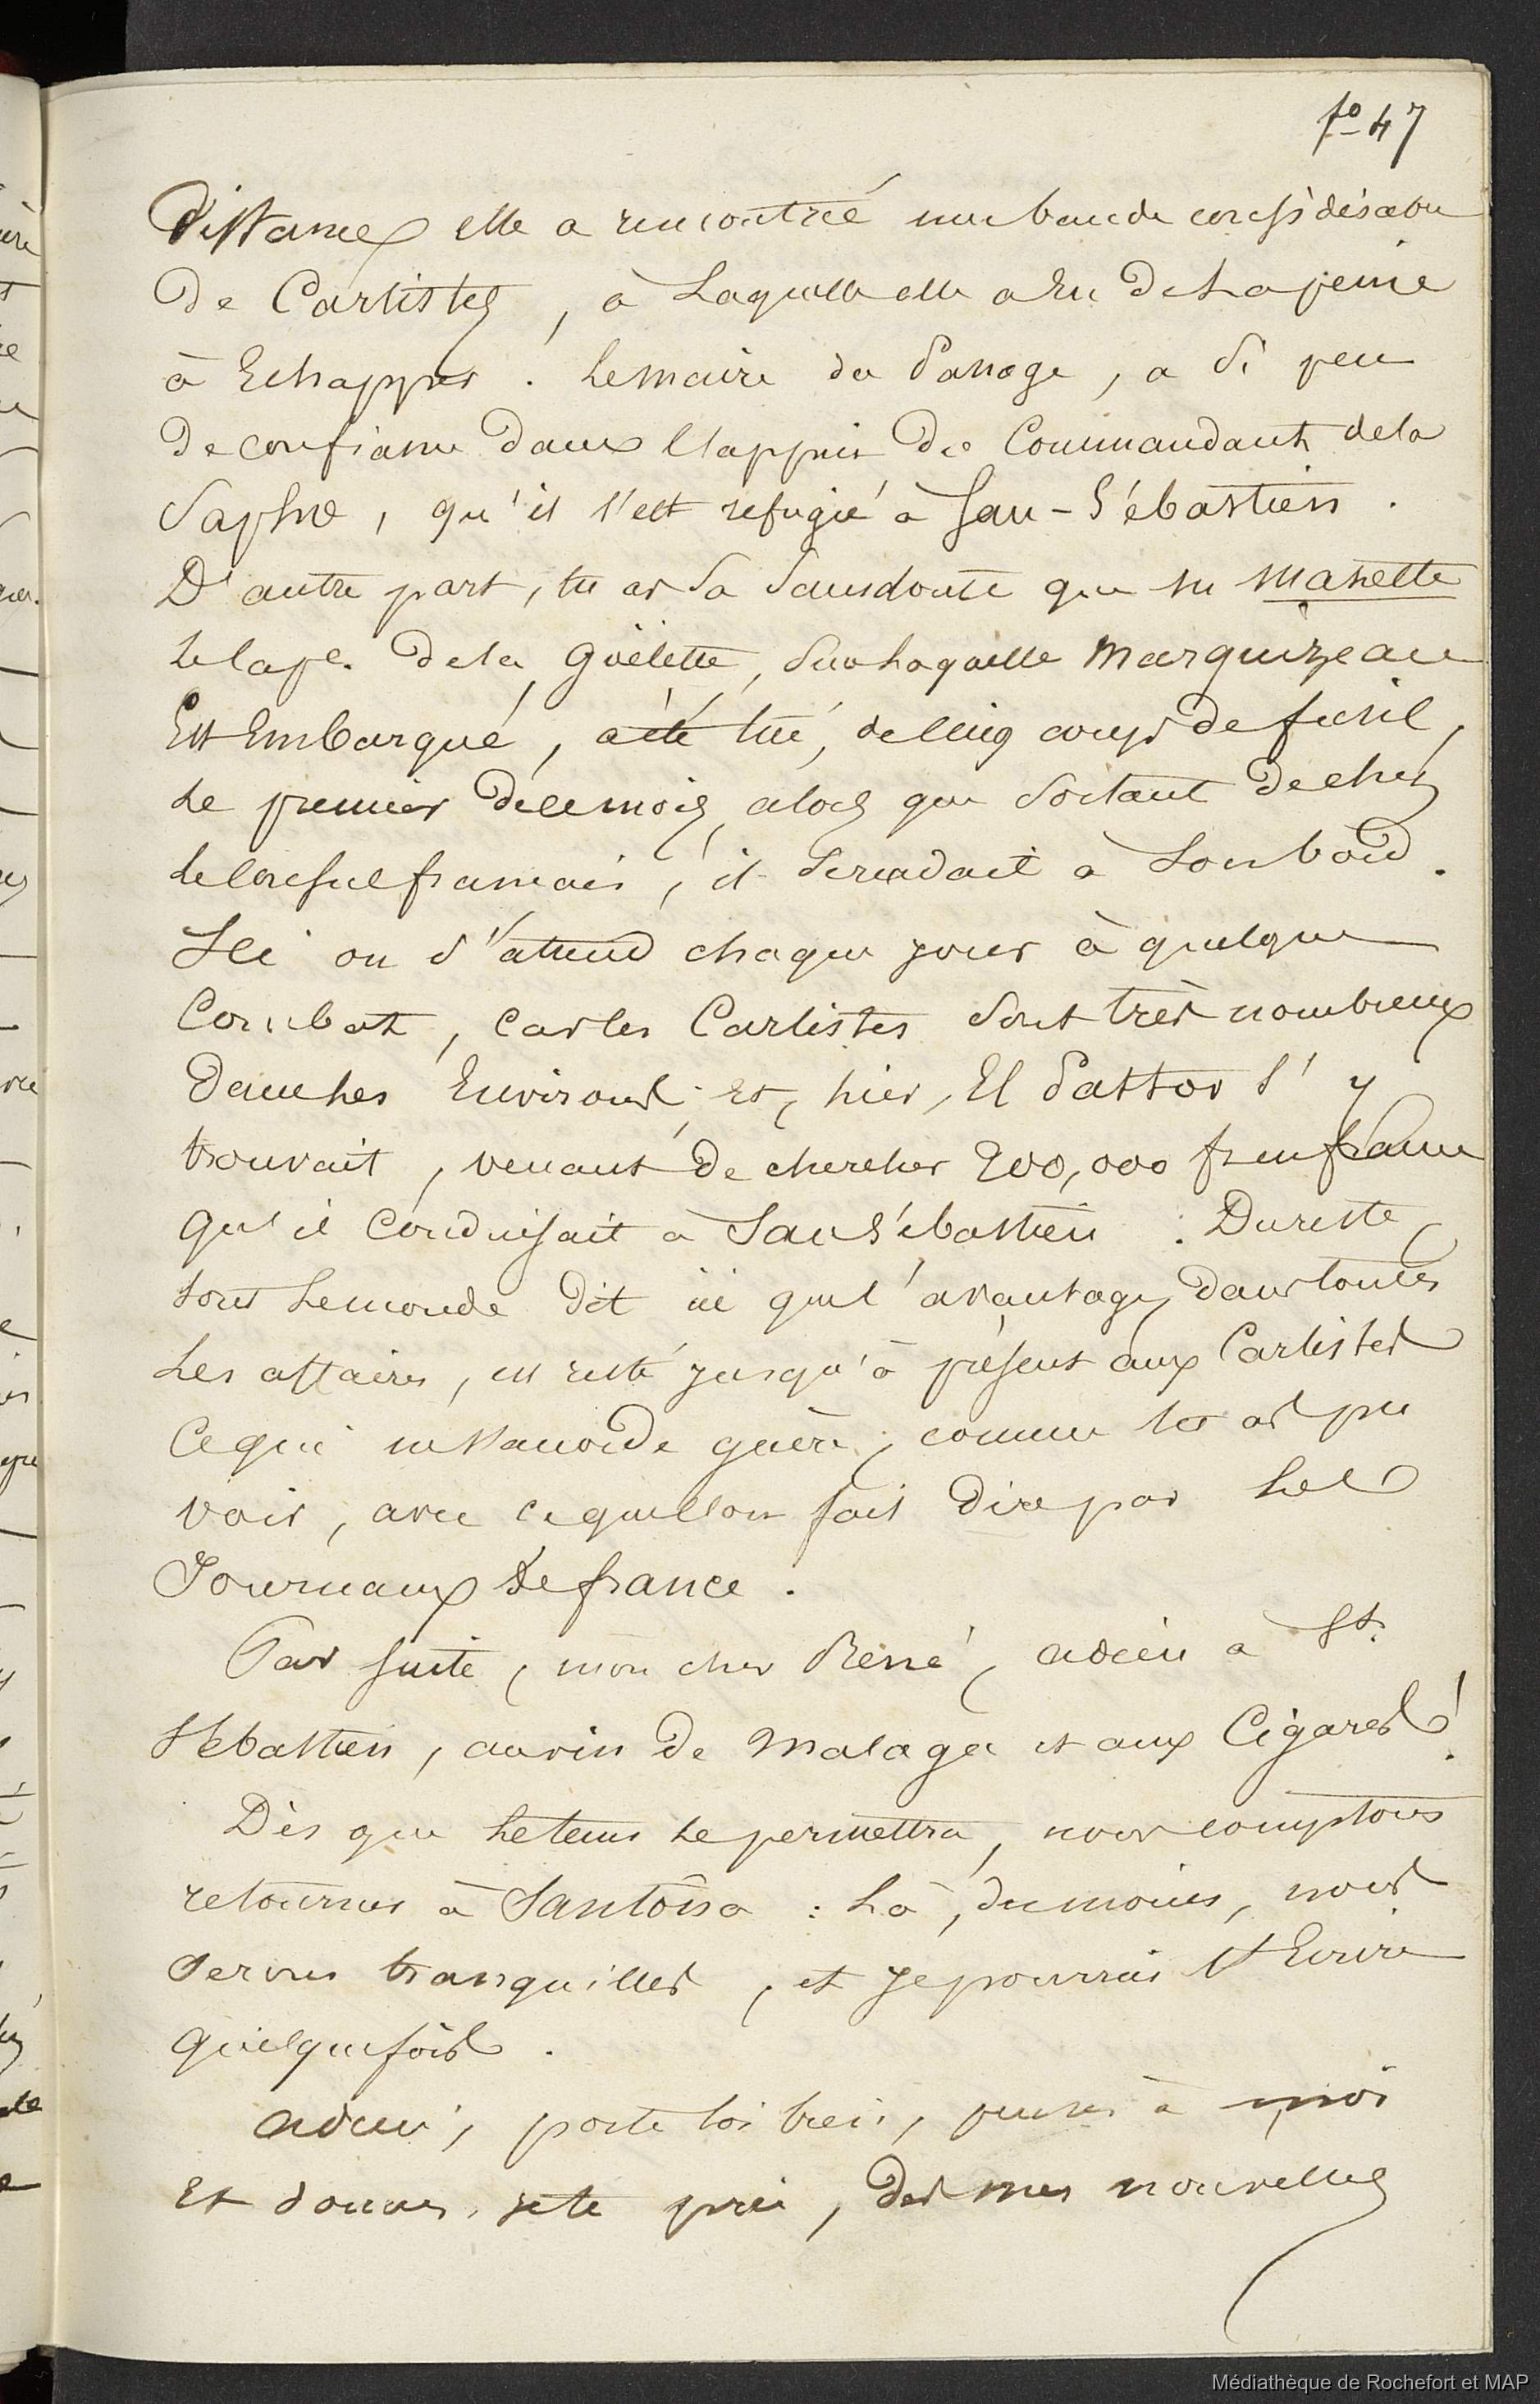 fo 47
Distance elle a rencontré une bande considérable
De Carlistes, à Laquelle elle a Eu De La peine
à Echapper. Le maire du Passage, a Si peu
De confiance Dans l'appui Du Commandant dela
Sapho, qu'il s'est refugié à San-Sébastien.
D'autre part, tu as Su Sans doute que M Masette
Le Cape. De la Goëlette, Sur Laquelle Marquizeau
Est Embarqué, a été tué, de Cinq coups de fusil,
Le premier De Ce mois, alors que Sortant De chez
Le Consul français, il Se rendait à Son bord.
Ici on S'attend chaque jour à quelque
Combat, car les Carlistes Sont très nombreux
Dans les Environs ; et, hier, El Pastor S'y
trouvait, venant De chercher 200,000 fr en france
qu'il Conduisait à San Sébastien : Dureste,
tout Le monde Dit ici que l'avantage, Dans toutes
Les affaires, est resté jusqu'à présent aux Carlistes
Ce qui ne s'accorde guère, comme tu as pu
voir, avec Ce que l'on fait Dire par Les
Journaux De france.
Par suite, mon cher René, adieu à St.
Sébastien, au vin De Malaga et aux Cigares !
Dès que Le tems Le permettra, nous comptons
retourner à Santôna : Là, du moins, nous
Serons tranquilles, et je pourrai t'Ecrire
quelquefois.
adieu, porte toi bien, penses à moi
Et donnes, je te prie, De mes nouvelles
Médiathèque de Rochefort et MAP